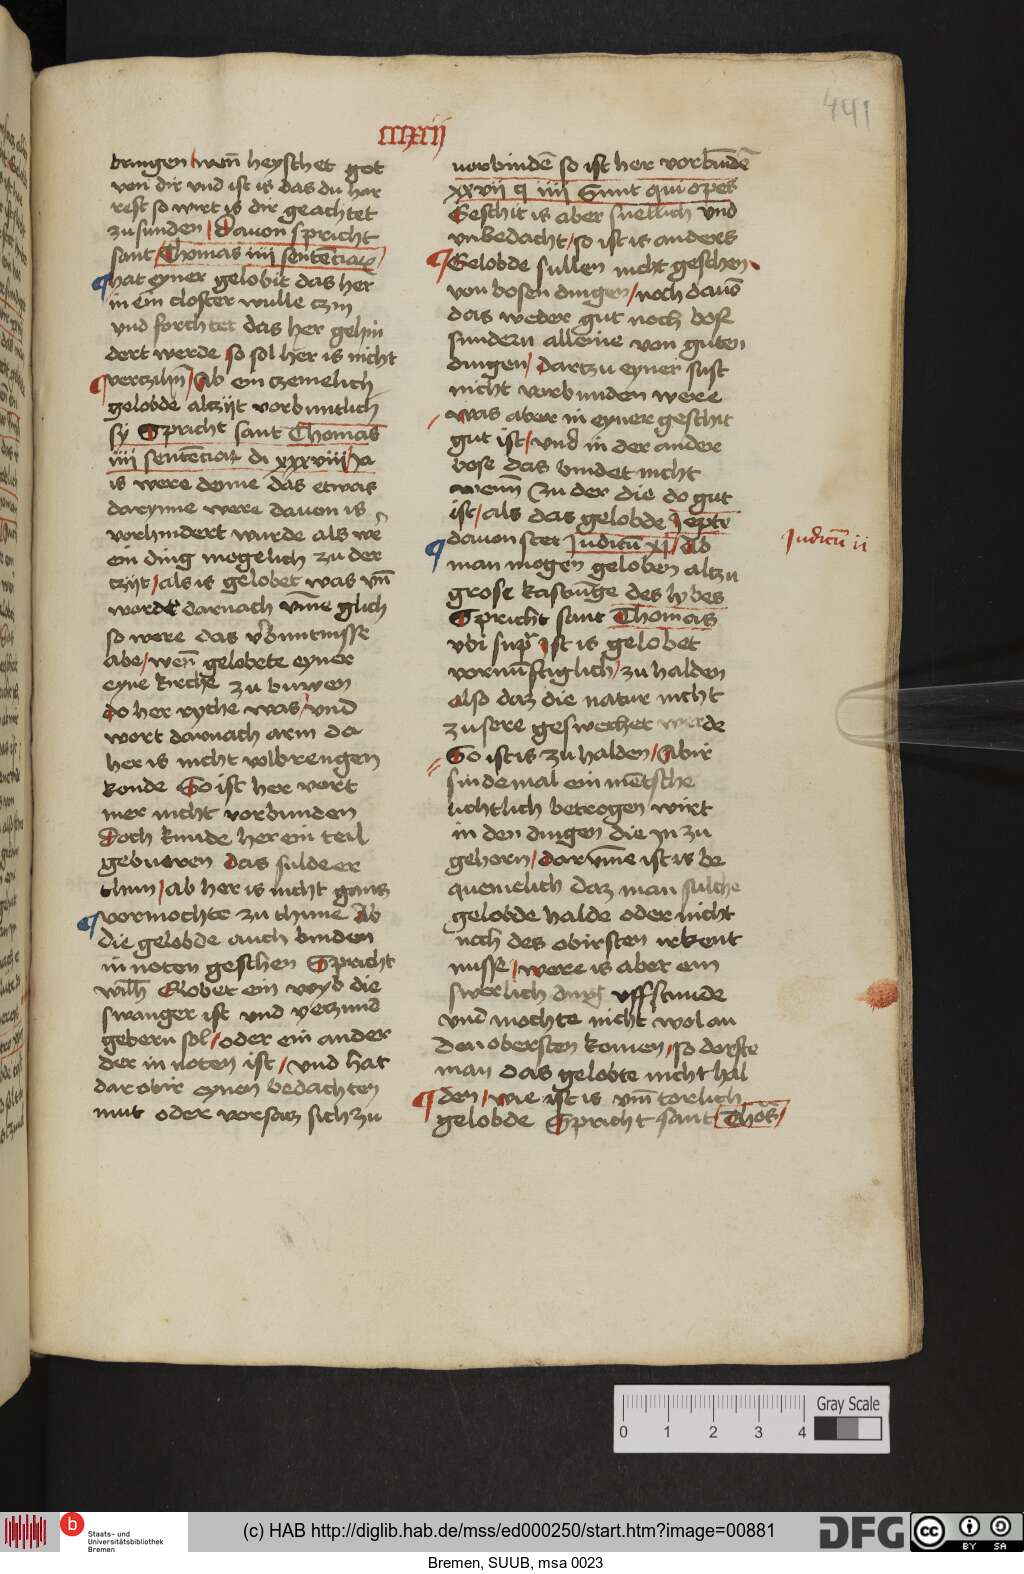 441
cccxcij
brengen wen̄ heyschet got
von dir vnd ist is das du har
rest so wirt is dir geachtet
zu sunden Dauon spricht
sant Thomas iiii sentēciaꝝ
hat eyner gelobit das her
in ein closter wulle czin
vnd forchtet das her gehin
dert werde so sol her is nicht
verczihn̄ Ab ein czemelich
gelobde alczijt vorbuntlich
sy Spricht sant Thomas
iiii sentēciaꝝ di xxxviii a
is were denne das etwas
darynne were dauon is
vorhindert wurde als we
ein ding mogelich zu der
czijt als is gelobet was vn̄
worde darnach vm̄e glich
so were das v'buntnisse
abe wen̄ gelobete eyner
eyne kirche zu buwen
do her ryche was vnd
wort darnach arm da
her is nicht volbrengen
konde So ist her vort
mer nicht vorbunden
Doch kunde her ein teil
gebuwen das sulde er
thun ab her is nicht gans
vormochte zu thune Ab
die gelobde auch binden
in noten geschen Spricht
wilh̄ Globet ein wyb die
swanger ist vnd yetzund
gebern sol oder ein ander
der in noten ist vnd hat
dar obir eynen bedachten
mut oder vorsatz sich zu
vorbindē so ist her vorbūdē
xxvii q iiii Sunt qui opes
Geschit is aber snellich vnd
vnbedacht so ist is anders
Gelobde sullen nicht geschen
von bosen dingen noch dauō
das weder gut noch bose
sundern alleine von guten
dingen dartzu eyner sust
nicht vorbunden were
was aber in eyner geschit
gut ist vnd in der ander
bose das bindet nicht
wenn̄ zu der die do gut
ist als das gelobde Jepte
dauon stet Judicū xj Ab
man mogen geloben altzu
grose kastūge des lybes
Spricht sant Thomas
vbi supͣ Jst is gelobet
vornūftiglich zu halden
also daz die natur nicht
zu sere geswechet werde
So ist is zu halden Abir
sindemal ein mētsche
lichtlich betrogen wirt
in den dingen die yn zu
gehorn darvm̄e ist is be
quemelich daz man sulche
gelobde halde oder nicht
noch des obirsten irkent
nisse were is aber ein
swerlich ding vffstunde
vnd mochte nicht wol an
den obersten komen so dorfte
man das gelobte nicht hal
den wie ist is vm̄ torlich
gelobde Spricht sant Thōs
Judicū ii
0 1 2 3 4
Gray Scale
Staats- und
Universitätsbibliothek
Bremen
(c) HAB http://diglib.hab.de/mss/ed000250/start.htm?image=00881
DFG
cc
BY SA
Bremen, SUUB, msa 0023